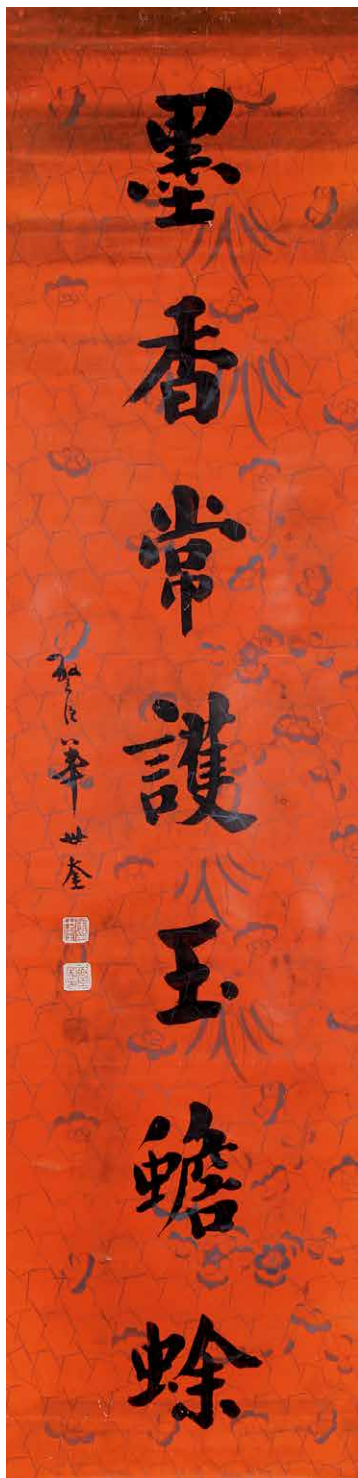 墨香常護玉蟾蜍
華世奎